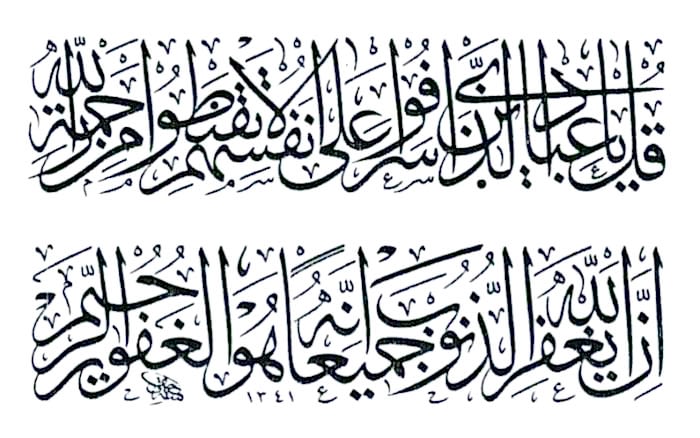 قل يا عبادي الذين أسرفوا على أنفسهم لا تقنطوا من رحمة الله
إن الله يغفر الذنوب جميعا إنه هو الغفور الرحيم
١٣٤١